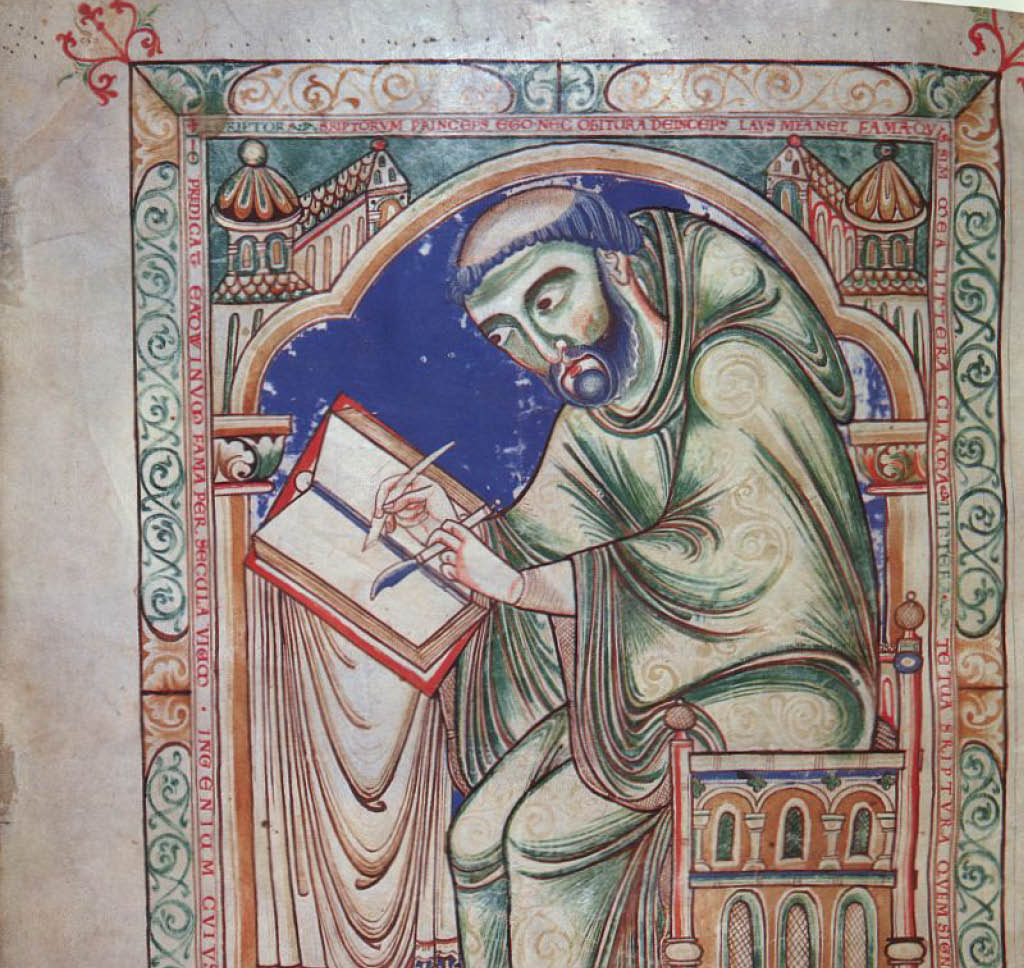 SCRIPTORVM PRINCEPS EGO NEC OBITVRA DEINCEPS LAVS MEA NEC FAMA QV
SIM MEA LITTERA CLAMA LITTER TE TVA SCRIPTVRA QVEM SIGN
PREDICAT EADWINVM FAMA PER SECVLA VIVVM · INGENIVM CVIVS